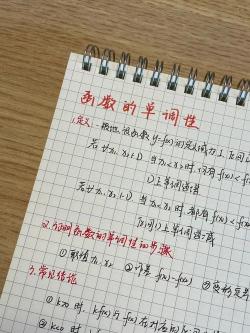 函数的单调性
1.定义:一般地,设函数y=f(x)的定义域为I,区间
若∀x₁,x₂∈D,当x₁<x₂时,都有f(x₁)<f(x₂)
D上单调递增
若∀x₁,x₂∈D,当x₁<x₂时,都有f(x₁)<f(x
区间D上单调递减
2.证明函数的单调性的步骤
①取值x₁,x₂ ②作差f(x₁)-f(x₂) ③变形定号
3.常见结论
①k>0时,kf(x)与f(x)在对应区间
②k<0时